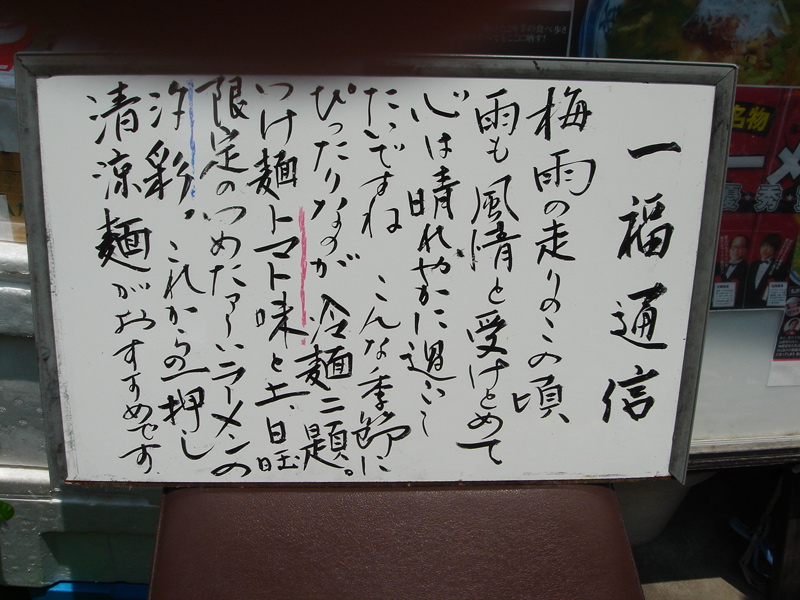 一福通信
梅雨の走りのこの頃
雨も風情と受けとめて
心は晴れやかに過ごし
たいですね こんな季節に
ぴったりなのが冷麺二題。
つけ麺トマト味と土、日曜
限定のつめたァーいラーメンの
汐彩。これからの一押し
清涼麺がおすすめです
名物
優・秀